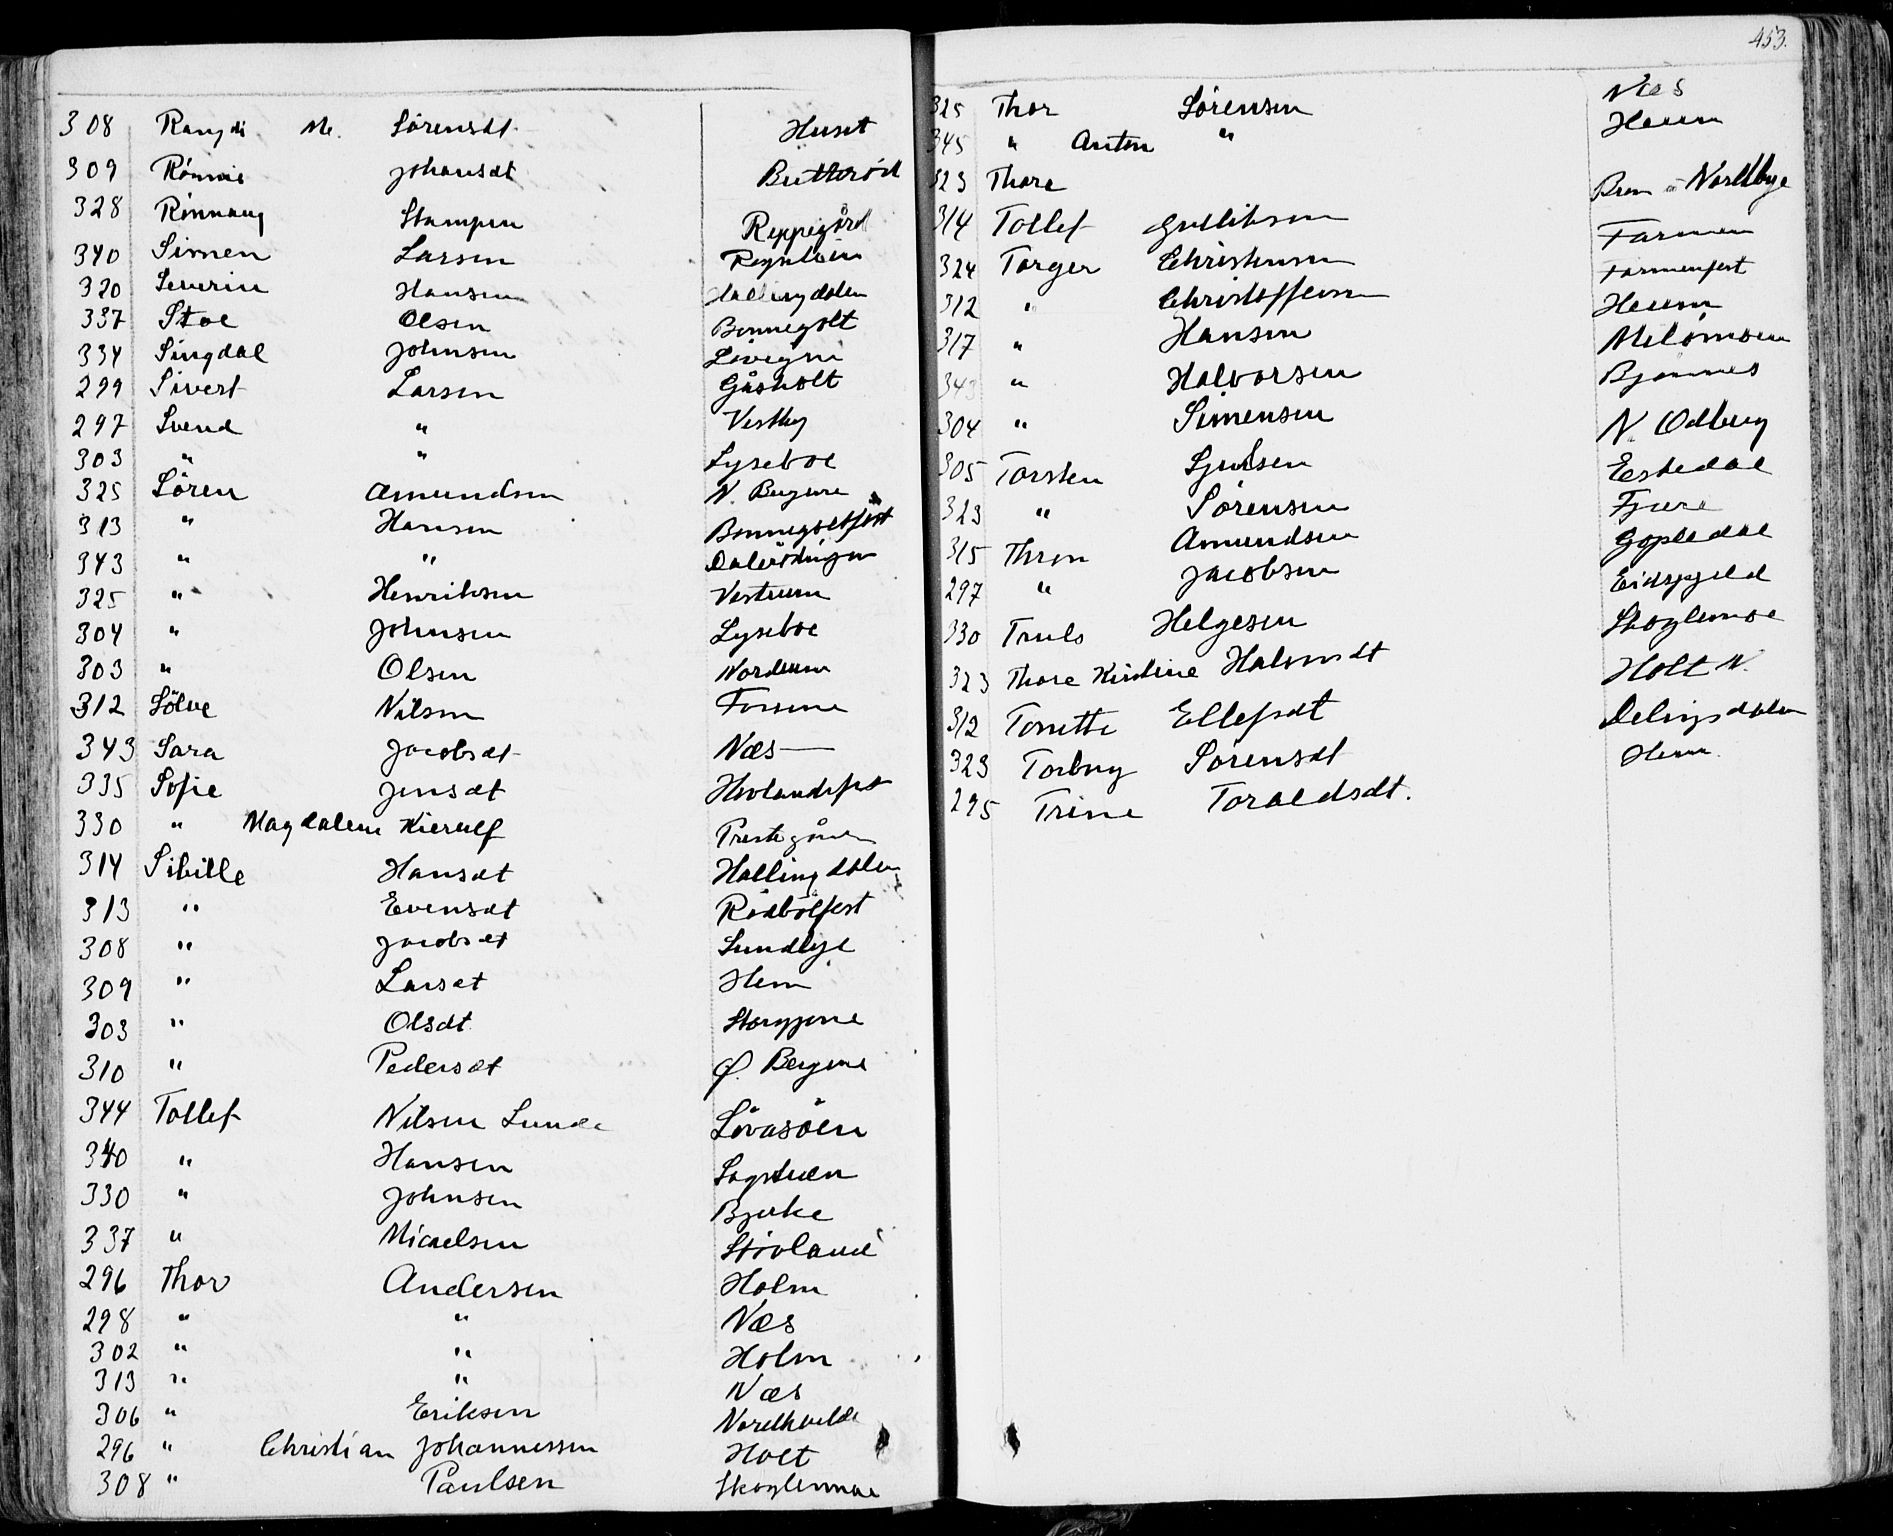 308 Rangdi M. Sörensdt Huset
309 Rönnie Johansdt Butterød
328 Rönnaug Stampen Reppegård
340 Simen Larsen
320 Severin Hansen Hallingdalen
337 Stoe Olsen Bonnegolt
334 Singdal Johnsen Lövegni
299 Sivert Larsen Gåsholt
297 Svend " Vestby
303 " " Lyseboe
325 Sören Amundsen N. Bergene
313 " Hansen Bonnegoltfest
343 " "
325 " Henriksen Vestrum
304 " Johnsen Lyseboe
303 " Olsen Nordrum
312 Sölve Nilsen Forsene
343 Sara Jacobsdt Næs
335 Sofie Jensdt Hovlandsfest
330 " Magdalene Kierulf Prestegården
314 Sibille Hansdt Hallingdalen
313 " Evensdt Rødbölfest
308 " Jacobsdt Sundbye
309 " Larsdt Hem
303 " Olsdt Storgjone
310 " Pedersdt Ø. Bergene
344 Tollef Nilsen Lunde Lövasöen
340 " Hansen Sagstuen
330 " Johnsen Bjerke
337 " Micaelsen Stövland
296 Thor Andersen Holm
298 " " Næs
302 " " Holm
313 " " Næs
306 " Eriksen Nordkvelde
296 " Christian Johannessen Holt
308 " Paulsen Skoglemoe
453.
325 Thor Sörensen Næs
345 " Anton " Heum
323 Thore Bren Nordbye
314 Tollef Gulliksen Farmen
324 Torger Christensen Farmenfest
312 " Christoffersen Heum
317 " Hansen Melömoen
343 " Halvorsen Bjønnes
304 " Simensen N. Odberg
305 Torsten Sjulsen Eskedal
323 " Sörensen Fjære
315 Thron Amundsen Gopledal
297 " Jacobsen Eidsfjeld
330 Truls Helgesen Skoglemoe
323 Thore Kirstine Halvorsdt Holt N.
312 Torette Ellefsdt Delingsdalen
323 Torborg Sörensdt Hem
295 Trine Toraldsdt.